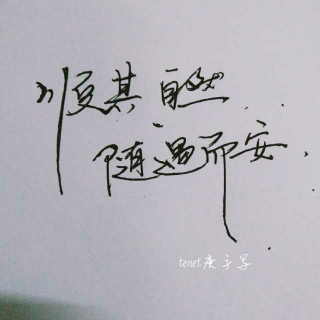 顺其自然
随遇而安
tenet廣手写